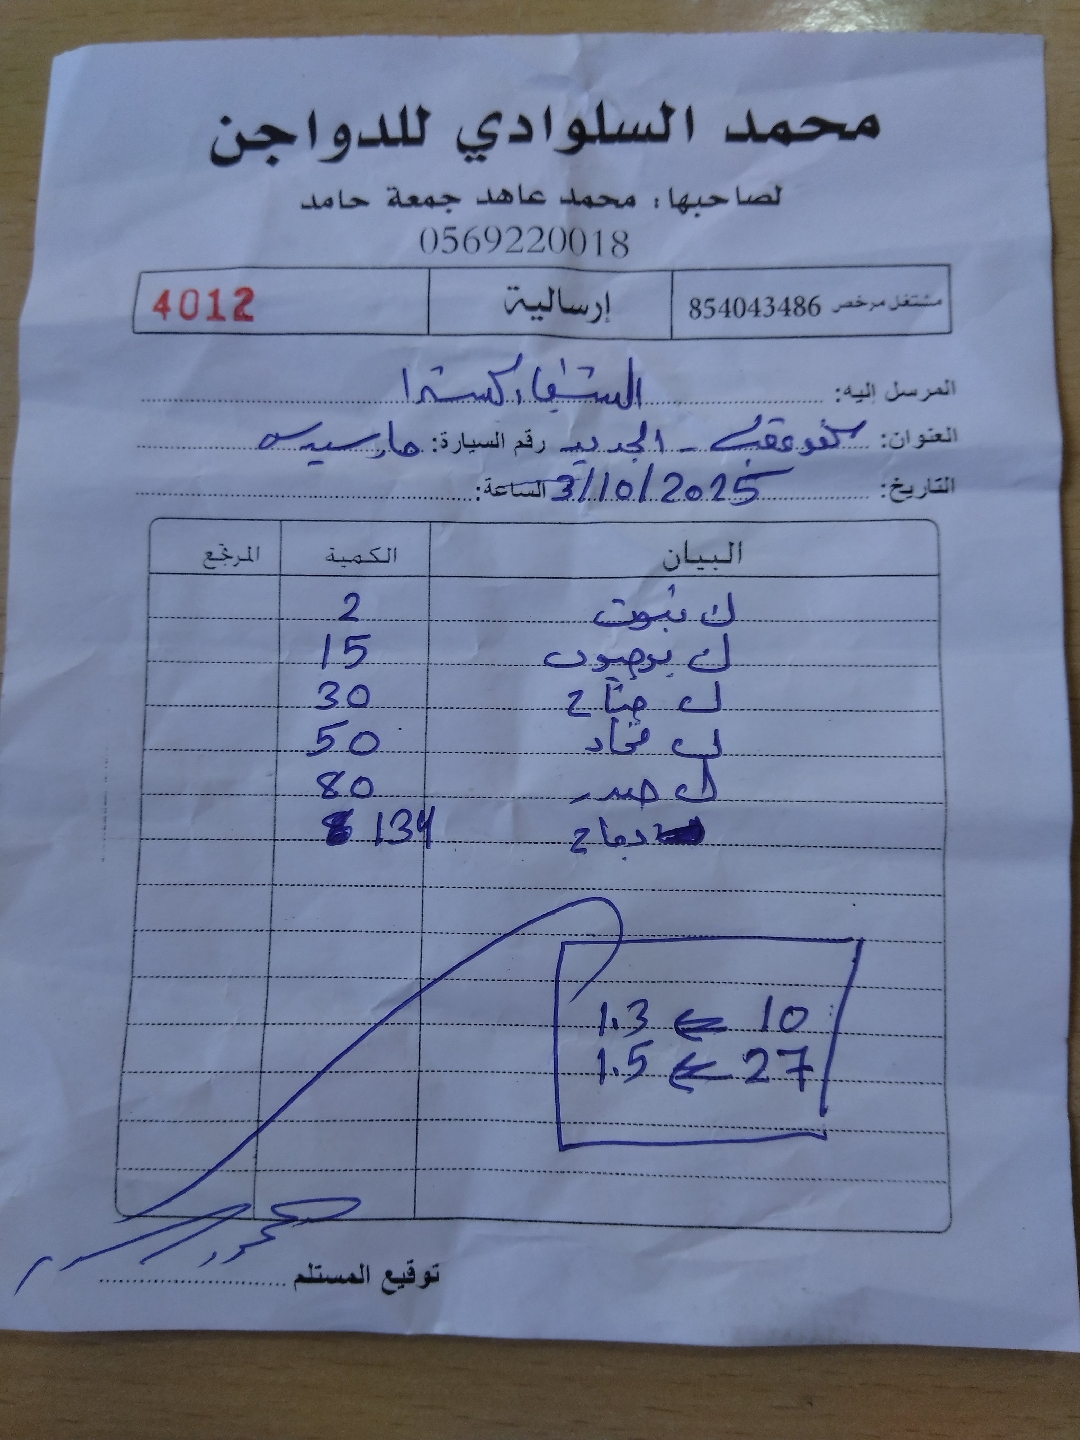 محمد السلوادي للدواجن
لصاحبها: محمد عاهد جمعة حامد
0569220018
مشتغل مرخص 854043486 إرسالية 4012
المرسل إليه: السنيار كسترا
العنوان: كفرعقب - الجديد رقم السيارة: مارسيدس
التاريخ: 3/10/2025 الساعة:
البيان الكمية المرتجع
ك 2
ك 15
ك جناح 30
ك فخاد 50
ك صدر 80
دجاج 134
10 ⇐ 1.3
27 ⇐ 1.5
توقيع المستلم